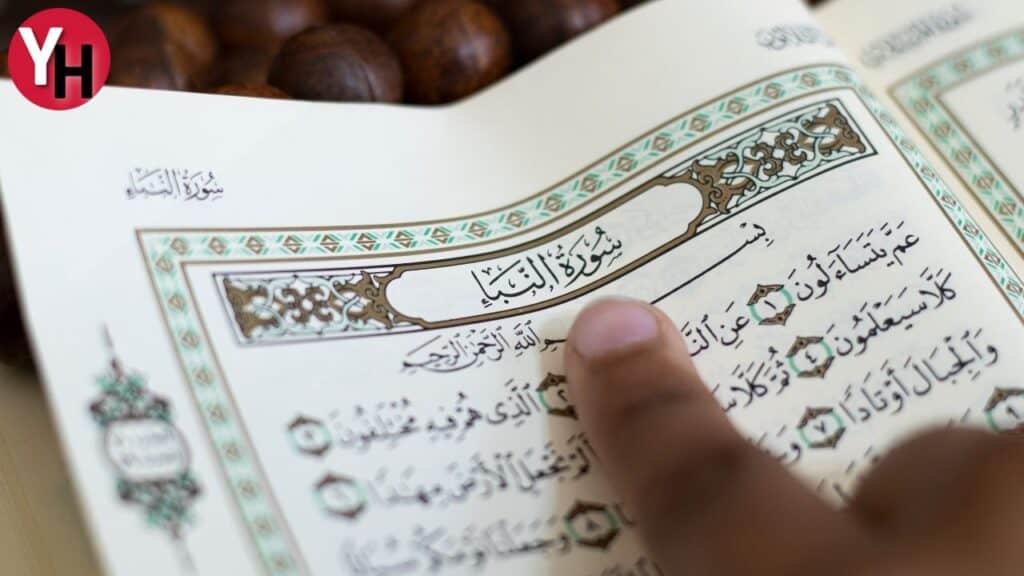 YH
سُورَةُ النَّبَإِ
سُورَةُ النَّبَإِ
بِسْمِ اللَّهِ الرَّحْمَٰنِ الرَّحِيمِ
عَمَّ يَتَسَاءَلُونَ ١ عَنِ ٢ الَّذِي هُمْ فِيهِ مُخْتَلِفُونَ ٣
كَلَّا سَيَعْلَمُونَ ٤ ثُمَّ كَلَّا أَلَمْ نَجْعَلِ الْأَرْضَ مِهَادًا ٦
وَالْجِبَالَ أَوْتَادًا ٧ ٨ وَجَعَلْنَا نَوْمَكُمْ سُبَاتًا